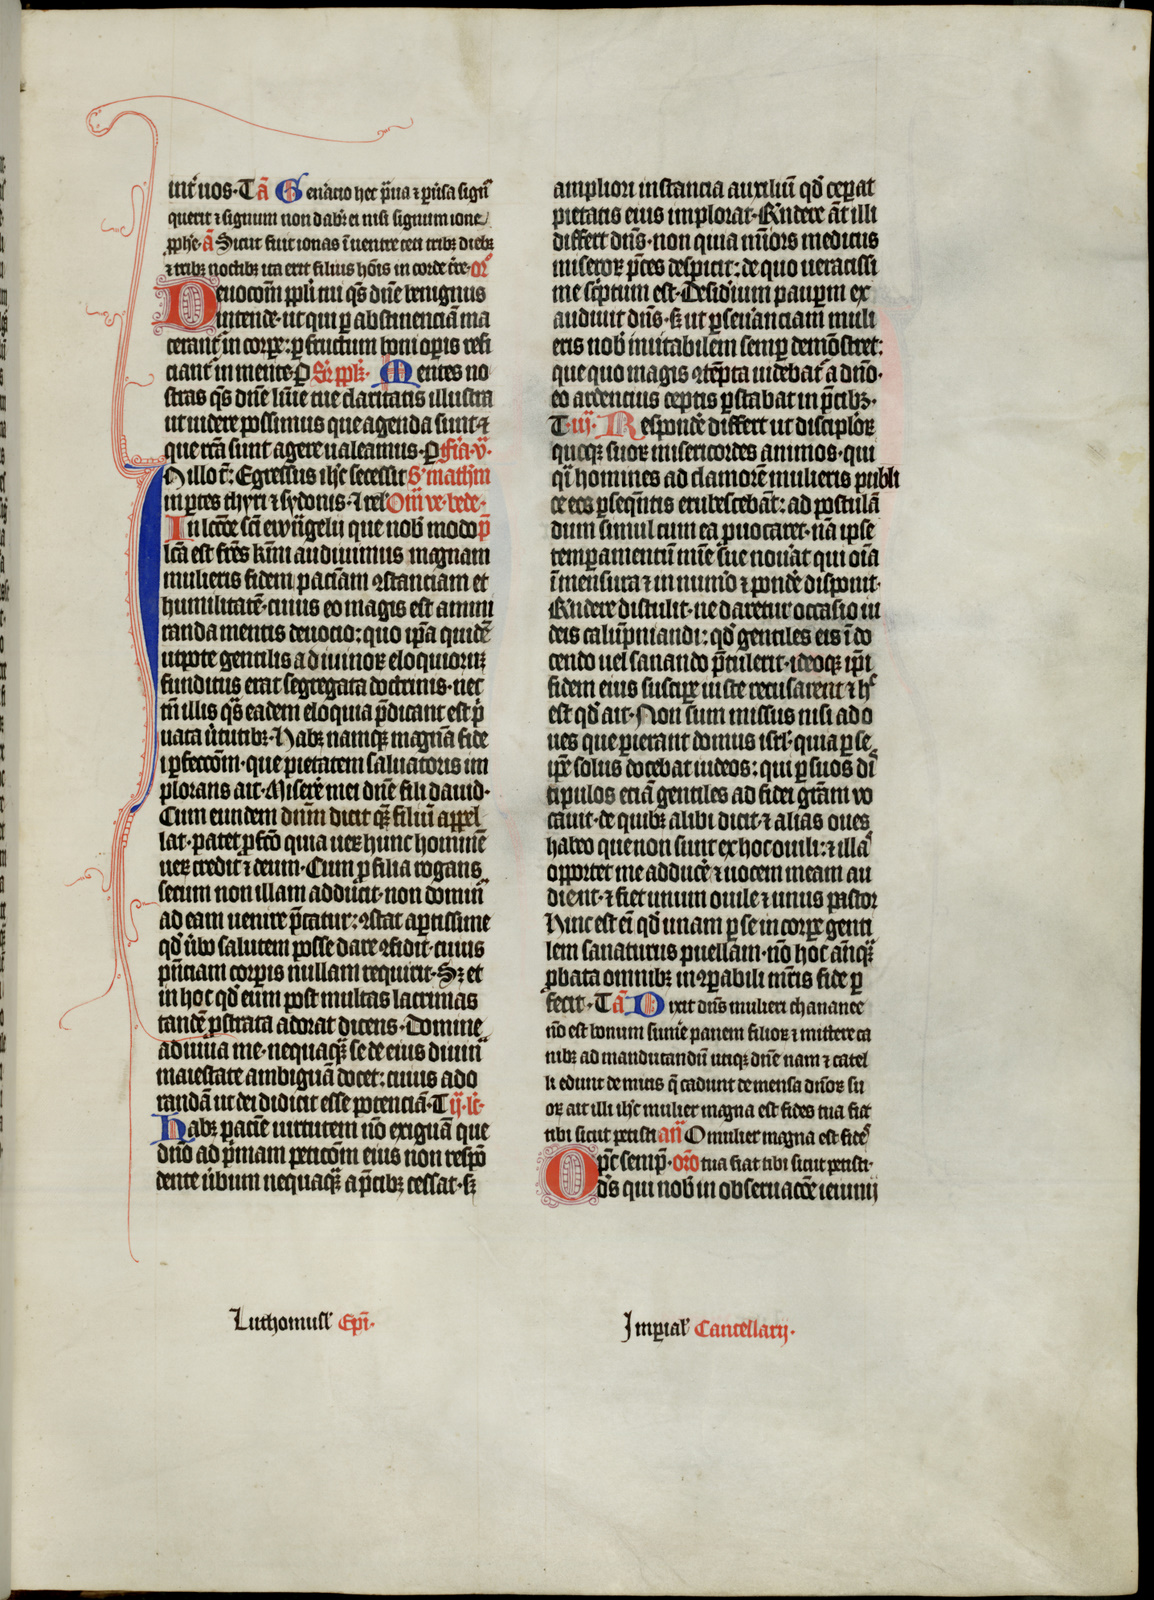 int̄ uos · T ā Gen̄acio hec p̄ua ⁊ ꝑuīsa signū
querit ⁊ signum non dabit̄ ei nisi signum ione
ꝓph̄e · ā Sicut fuit ionas ī uentre ceti tribꝫ diebꝫ
⁊ tribꝫ noctibꝫ ita erit filius hōis in corde t̄re · or̄
Deuocōem ppl̄i tui qs̄ dn̄e benignus
intende · ut qui ꝑ abstinenciam ma
cerant̄ in corpe : ꝑ fructum boni oꝑis refi
ciant̄ in mente · ꝑ Sr̄ ppl̄m · Mentes no
stras qs̄ dn̄e lumīe tue claritatis illustra
ut uidere possimus que agenda sunt · ⁊
que rc̄a sunt agere ualeamus · ꝑ fīa · v ·
In illo t̄ : Egressus ih̄c secessit S · mathm̄
in ꝑtes thyri ⁊ sydonis · ⁊ rel̄ Om̄ ve · bede ·
In lc̄cōe sc̄i ewāgelii que nob̄ modo p̄
lc̄a est fr̄es km̄i audiuimus magnam
mulieris fidem pacīam ꝯstanciam et
humilitatē · cuius eo magis est ammi
randa mentis deuocio : quo ip̄a quidē
utpote gentilis a diuinoꝝ eloquiorum
funditus erat segregata doctrinis · nec
tn̄ illis qs̄ eadem eloquia p̄dicant est p̄
uata ūtutibꝫ · Habꝫ namqꝫ magnā fidē
ꝑfeccōem · que pietatem saluatoris im
plorans ait · Misere mei dn̄e fili dauid ·
Cum eundem dnm̄ dicit qꝫ filiū appel
lat · patet ꝓfc̄o quia ueꝝ hunc hominē
ueꝝ credit ⁊ deum · Cum ꝓ filia rogans
secum non illam adducit · non dominū
ad eam uenire p̄catur : ꝯstat aꝑtissime
qd̄ ūbo salutem posse dare ꝯfidit · cuius
pn̄ciam corꝑis nullam requirit · Sꝫ et
in hoc qd̄ eum post multas lacrimas
tandē ꝓstrata adorat dicens · Domine
adiuua me · nequaqꝫ se de eius diuin̄
maiestate ambiguā docet : cuius ado
randā ut dei didicit esse potenciā · T ij · lc̄ ·
Habꝫ pacīe uirtutem nō exiguā que
dn̄o ad p̄mam peticōem eius non respō
dente ūbum nequaqꝫ a p̄cibꝫ cessat · sꝫ
ampliori instancia auxiliū qd̄ ceperat
pietatis eius implorat · Rn̄dere āt illi
differt dn̄s · non quia mīsoꝝ medicus
miseroꝝ p̄ces despicit : de quo ueracissi
me scriptum est · Desideriū pauperum ex
audiuit dn̄s · sꝫ ut ꝑseūanciam muli
eris nob̄ imitabilem semꝑ demōstret :
que quo magis ꝯtēpta uidebat̄ a dn̄o ·
eo ardencius ceptis ꝑstabat in p̄cibꝫ ·
T · iij · Respondē differt ut discipl̄oꝝ
quoqꝫ suoꝝ misericordes animos · qui
qi homines ad clamorē mulieris publi
ce eos ꝑseqn̄tis erubescebāt : ad postulā
dum simul cum ea ꝓuocaret · nā ipse
temꝑamentū mīe sue nouat qui oīa
ī mensura ⁊ in num̄o ⁊ pondē disponit ·
Rn̄dere distulit · ne daretur occasio iu
deis calūpniandi : qd̄ gentiles eis ī do
cendo uel sanando p̄tulerit · ideoqꝫ ip̄i
fidem eius suscipe iuste recusarent ⁊ h̄
est qd̄ ait · Non sum missus nisi ad o
ues que ꝑierant domus isrl̄ · quia ꝑ se
ip̄e solus docebat iudeos : qui ꝑ suos di
scipulos eciā gentiles ad fidei gr̄am vo
cauit · de quibꝫ alibi dicit · ⁊ alias oues
habeo que non sunt ex hoc ouili : ⁊ illas
oportet me adducē ⁊ uocem meam au
dient · ⁊ fiet unum ouile ⁊ unus pastor
Hinc est eī qd̄ unam ꝑ se in corpe genti
lem sanaturus puellam · nō hoc anqꝫ
ꝓbata omnibꝫ inꝯꝑabili mr̄is fide ꝑ
fecit · T ā Dixit dn̄s mulieri chananee
nō est bonum sumē panem filioꝝ ⁊ mittere ca
nibꝫ ad manducandū utiqꝫ dn̄e nam ⁊ catel
li edunt de micis q̄ cadunt de mensa dn̄oꝝ su
oꝝ ait illi ih̄c mulier magna est fides tua fiat
tibi sicut petisti an̄ O mulier magna est fides
Opc̄ semp̄ · orō tua fiat tibi sicut petisti ·
ds̄ qui nob̄ in obseruacōe ieiunij
Luthomusl̄ Epī ·
Imꝑial̄ Cancellarij ·